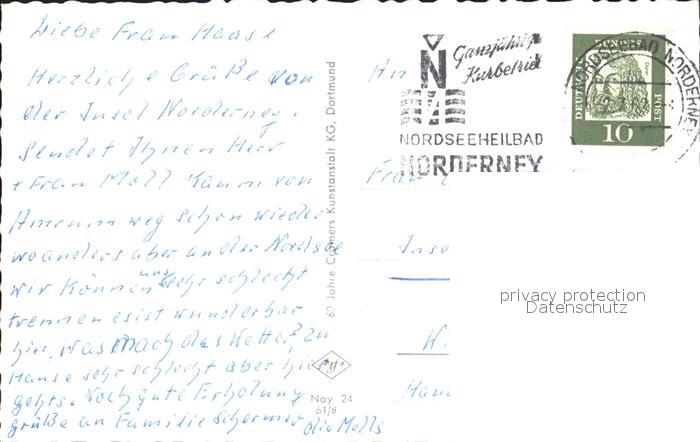 Liebe Frau Haase
Herzliche Grüße von
der Insel Norderney.
Sendet Ihnen Herr
+ Frau Moll Kaum von
Amrum weg schon wieder
woanders aber an der Nordsee
wir können uns sehr schlecht
trennen es ist wunderbar
hier, Was mach das Wetter? Zu
Hause sehr schlecht aber hier
gehts. Noch gute Erholung
grüße an Familie Schermer die Molls
60 Jahre Cramers Kunstanstalt KG, Dortmund
Noy 24
61/8
Ganzjährig
Kurbetrieb
N
NORDSEEHEILBAD
NORDERNEY
NORDSEEBAD NORDERNEY
DEUTSCHE BUNDESPOST
10
An
Frau
Inse
Hau
privacy protection
Datenschutz